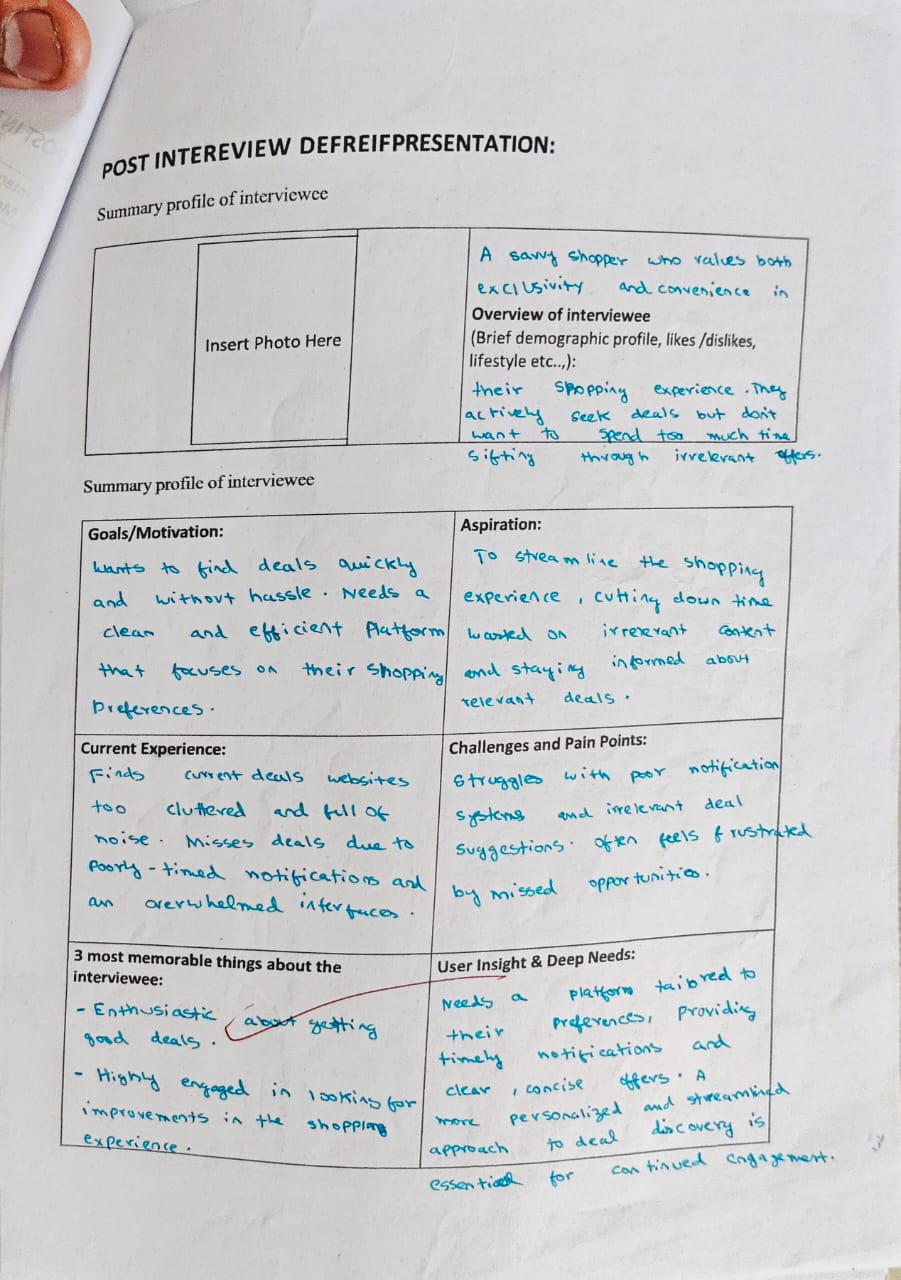 POST INTEREVIEW DEFREIFPRESENTATION:
Summary profile of interviewee
Insert Photo Here
A savvy shopper who values both
exclusivity and convenience in
Overview of interviewee
(Brief demographic profile, likes /dislikes,
lifestyle etc..,):
their shopping experience. They
actively seek deals but don't
want to spend too much time
sifting through irrelevant offers.
Summary profile of interviewee
Goals/Motivation:
Wants to find deals quickly
and without hassle. Needs a
clean and efficient platform
that focuses on their shopping
preferences.
Aspiration:
To streamline the shopping
experience, cutting down time
wasted on irrelevant content
and staying informed about
relevant deals.
Current Experience:
Finds current deals websites
too cluttered and full of
noise. Misses deals due to
poorly-timed notifications and
an overwhelmed interfaces.
Challenges and Pain Points:
Struggles with poor notification
systems and irrelevant deal
suggestions. Often feels frustrated
by missed opportunities.
3 most memorable things about the
interviewee:
- Enthusiastic about getting
good deals.
- Highly engaged in looking for
improvements in the shopping
experience.
User Insight & Deep Needs:
Needs a platform tailored to
their preferences, providing
timely notifications and
clear, concise offers. A
more personalized and streamlined
approach to deal discovery is
essential for continued engagement.